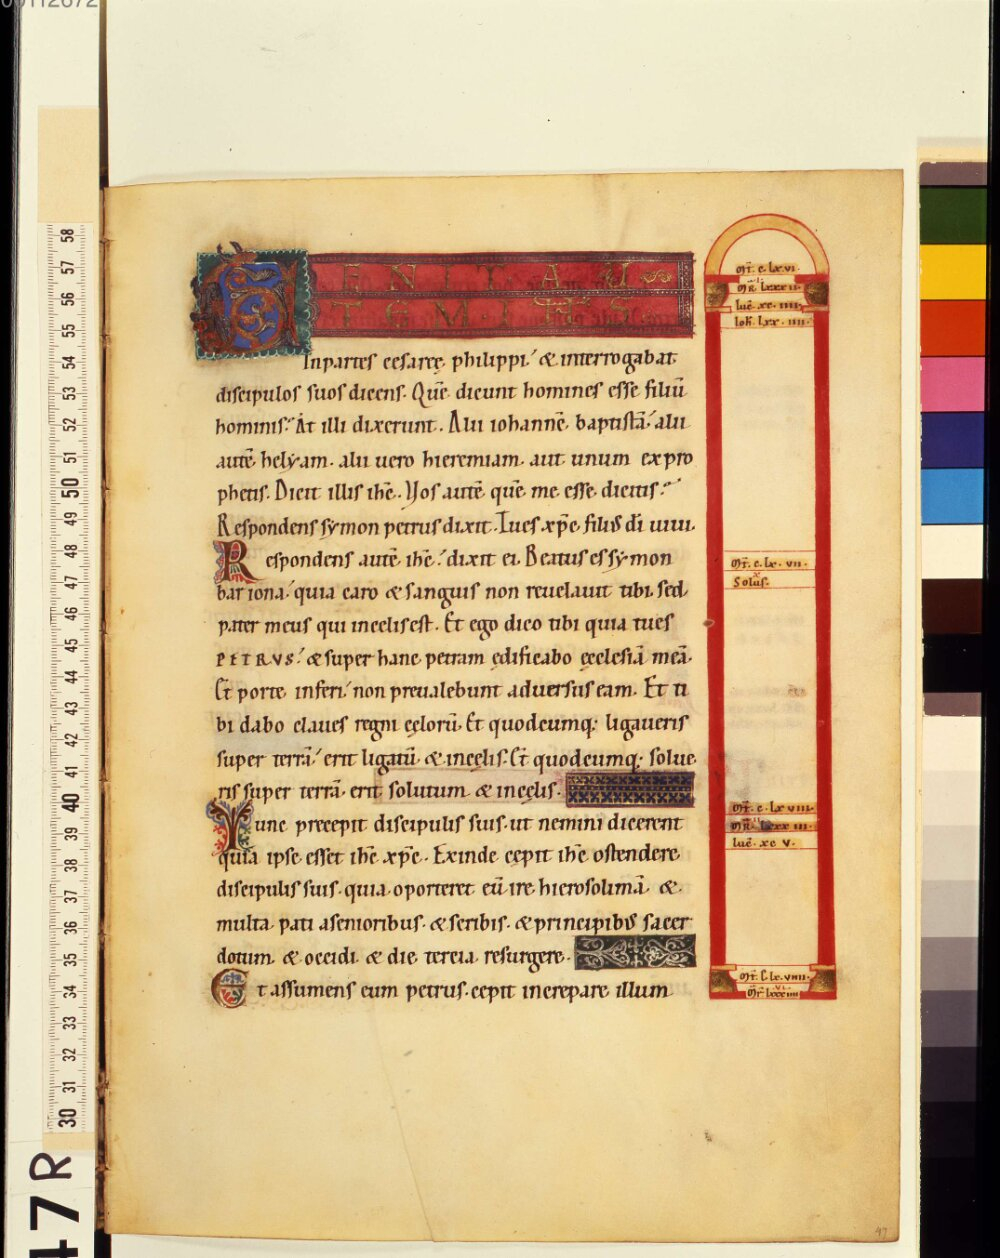 VENIT AU
TEM IHS
In partes cęsaręę philippi. & interrogabat
discipulos suos dicens. Quē dicunt homines esse filiū
hominis? At illi dixerunt. Alii iohannē baptistā. alii
autē helyam. alii uero hieremiam. aut unum ex pro
phetis. Dicit illis ihc. Vos autē quē me esse dicitis?
Respondens symon petrus dixit. Tu es xpc filius di uiui.
Respondens autē ihc. dixit ei. Beatus es symon
bar iona. quia caro & sanguis non reuelauit tibi. sed
pater meus qui in cęlis est. Et ego dico tibi quia tu es
PETRVS. & super hanc petram ędificabo ęcclesiā meā.
Et portę inferi. non preualebunt aduersus eam. Et ti
bi dabo claues regni cęlorū. Et quodcumq; ligaueris
super terrā. erit ligatū & in cęlis. Et quodcumq; solue
ris super terrā. erit solutum & in cęlis.
Tunc precepit discipulis suis. ut nemini dicerent
quia ipse esset ihc xpc. Exinde cępit ihc ostendere
discipulis suis. quia oporteret eū ire hierosolimā. &
multa pati a senioribus. & scribis. & principibus sacer
dotum. & occidi. & die tercia resurgere.
Et assumens eum petrus. cępit increpare illum
Mt. c. lxvi.
MR. lxxxii.
luc. xc. iiii.
Ioh. lxx. iiii.
Mt. c. lx. vii.
Solus.
Mt. c. lxviii.
MR. lxxx iii.
luc. xc v.
Mt. C. lx. viiii.
47
47R
58
57
56
55
54
53
52
51
50
49
48
47
46
45
44
43
42
41
40
39
38
37
36
35
34
33
32
31
30